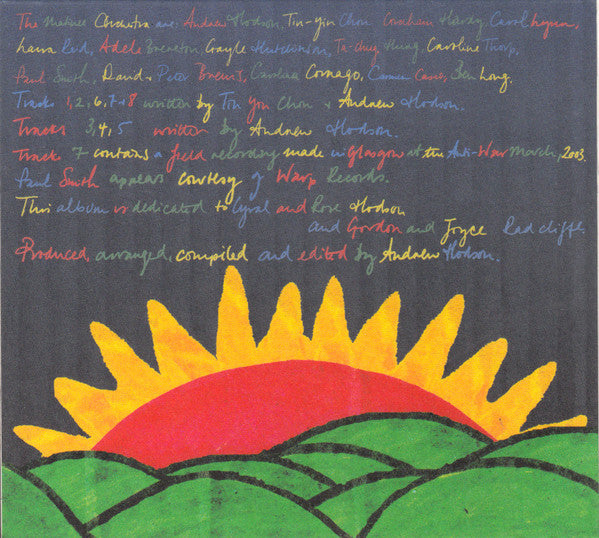 The Matinee Orchestra are: Andrew Hodson, Tin-yin Chon, Graham Harvey, Carol
Laura Reid, Adele Brereton, Gayle Hutchinson, Ta-chug Hung, Caroline Thorp,
Paul Smith, David + Peter Brewis, Carolina Cornago, Ben Long.
Tracks 1, 2, 6, 7 + 8 written by Tin Yin Chon + Andrew Hodson.
Tracks 3, 4, 5 written by Andrew Hodson.
Track 7 contains a field recording made in Glasgow at the Anti-War March, 2003.
Paul Smith appears courtesy of Warp Records.
This album is dedicated to Cyril and Rose Hodson
and Gordon and Joyce Radcliffe.
Produced, arranged, compiled and edited by Andrew Hodson.